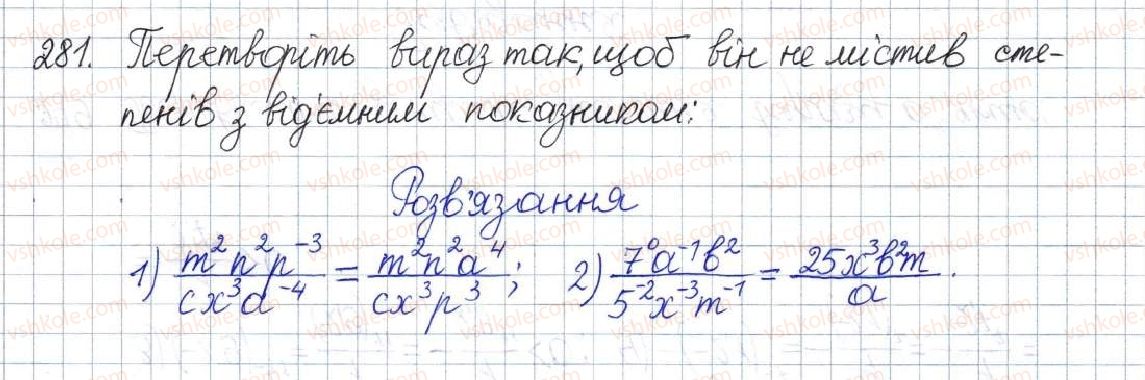 281. Перетворіть вираз так, щоб він не містив сте-
пенів з від'ємним показником:
Розв'язання
1) m²n²p⁻³/cx³a⁻⁴ = m²n²a⁴/cx³p³; 2) 7⁰a⁻¹b²/5⁻²x⁻³m⁻¹ = 25x³b²m/a.